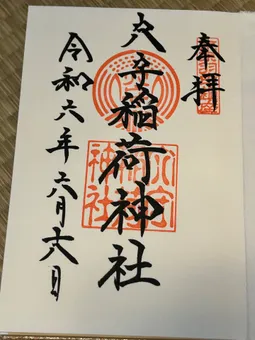 奉拝
穴守稲荷神社
令和六年六月十六日
神社